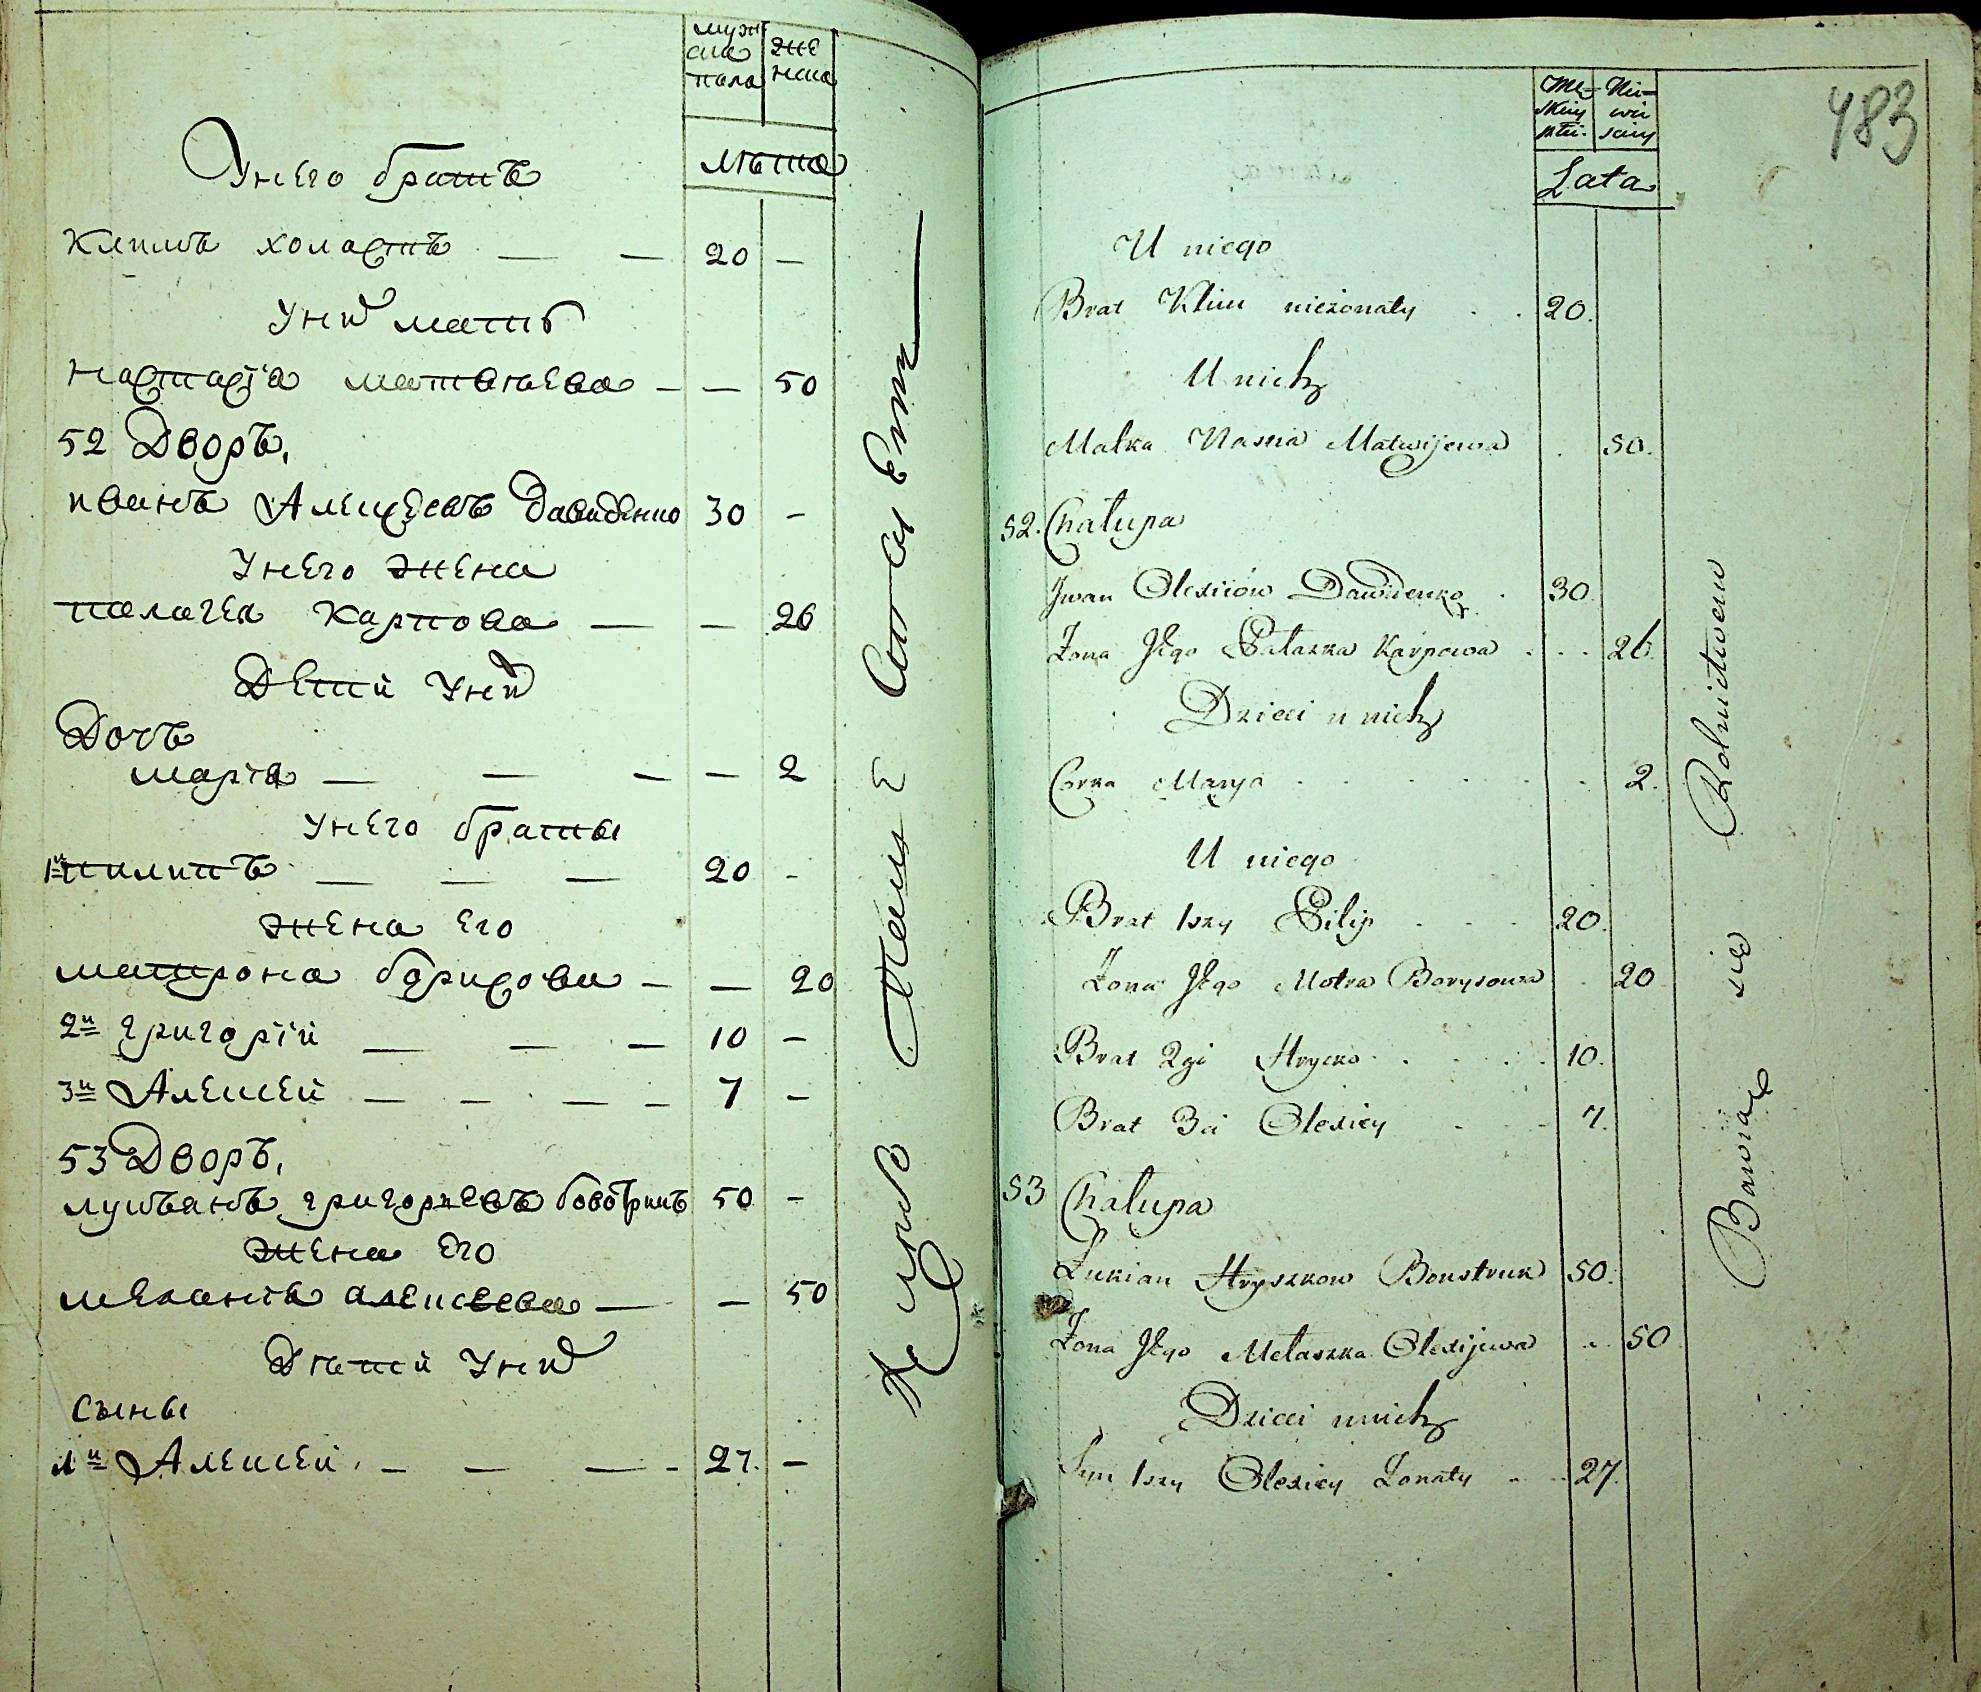 мужска пола
женска
лѣта
Унего братъ
Климъ холастъ — — 20 —
Униⷯ мать
Настасія матвѣева — — 50
52 Дворъ,
иванъ Алеѯеевъ Давиденко 30 —
Унего жена
палагея карпова — — 26
Дети Униⷯ
Дочъ
марія — — — — 2
Унего браты
1й пилипъ — — — 20 -
жена Его
матрона борисова — — 20
2й григорій — — — 10 —
3й Алексей — — — — 7 —
53 Дворъ,
лукъянъ григорьевъ 50 -
жена Его
меланія алексеева — — 50
Дѣти Униⷯ
сыны
1й Алексей. — — — - 27. —
483
Mę-skiey płci.
Nie-wie-sciey
Lata
U niego
Brat Klim nieżonaty . . 20.
U nich
Matka Nastia Matwijewa . 50.
52. Chałupa
Jwan Olexiiow Dawidenko . 30.
Żona Jego Pałazka Karpowa . . . 26.
Dzieci u nich
Corka Marya . . . . . . 2.
U niego
Brat 1szy Pilip . . . 20.
Żona Jego Motra Borysowa . 20
Brat 2gi Hrycko . . . . 10.
Brat 3ci Olexiey . . . 7.
53 Chałupa
Łukian Hryszkow Boustruk 50.
Żona Jego Mełaszka Olexijewa .. 50
Dzieci u nich
Syn 1szy Olexiey Żonaty .. .. 27.
Bawią się Rolnictwem